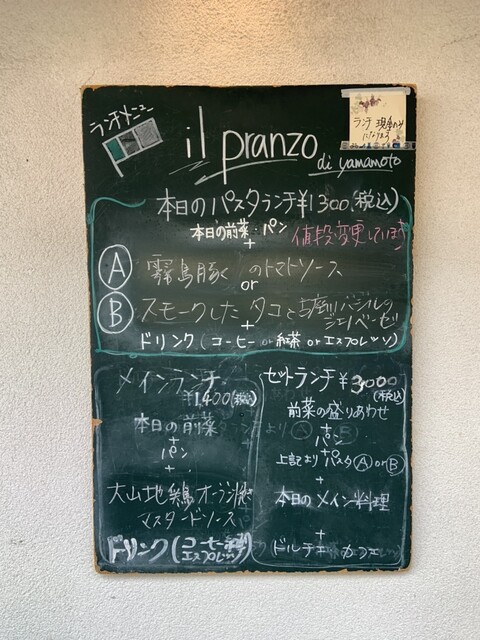 ランチメニュー
il pranzo
di yamamoto
ランチ 現金のみ
になります
本日のパスタランチ¥1300(税込)
本日の前菜・パン
値段変更しています
+
Ⓐ 霧島豚 のトマトソース
or
Ⓑ スモークしたタコと バジルの
ジェノベーゼ
+
ドリンク(コーヒー or 紅茶 or エスプレッソ)
メインランチ
¥1400(税込)
本日の前菜
+
パン
+
大山地鶏オーブン焼き
マスタードソース
ドリンク(コーヒー
エスプレッソ)
セットランチ¥3000
(税込)
前菜の盛りあわせ
+
パン
+
上記よりパスタⒶorⒷ
+
本日のメイン料理
+
ドルチェ カフェ